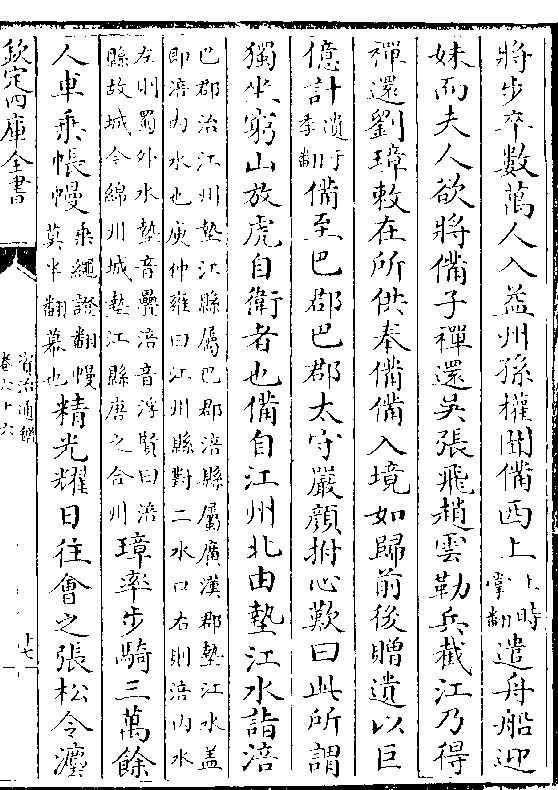 將步卒數萬人入益州孫權聞備西上上時掌翻遣舟船迎
妹而夫人欲將備子禪還吳張飛趙雲勒兵截江乃得
禪還劉璋敕在所供奉備備入境如歸前後贈遺以巨
億計遺于季翻備至巴郡巴郡太守嚴顏拊心歎曰此所謂
獨坐窮山放虎自衛者也備自江州北由墊江水詣涪
巴郡治江州墊江縣屬巴郡涪縣屬廣漢郡墊江水盖
即涪内水也庾仲雍曰江州縣對二水口右則涪内水
左則蜀外水墊音疊涪音浮賢曰涪
縣故城今綿州城墊江縣唐之合州璋率步騎三萬餘
人車乘帳幔乘繩證翻幔莫半翻幕也精光耀日往會之張松令瀍
欽定四庫全書
資治通鑑
卷六十六
十七